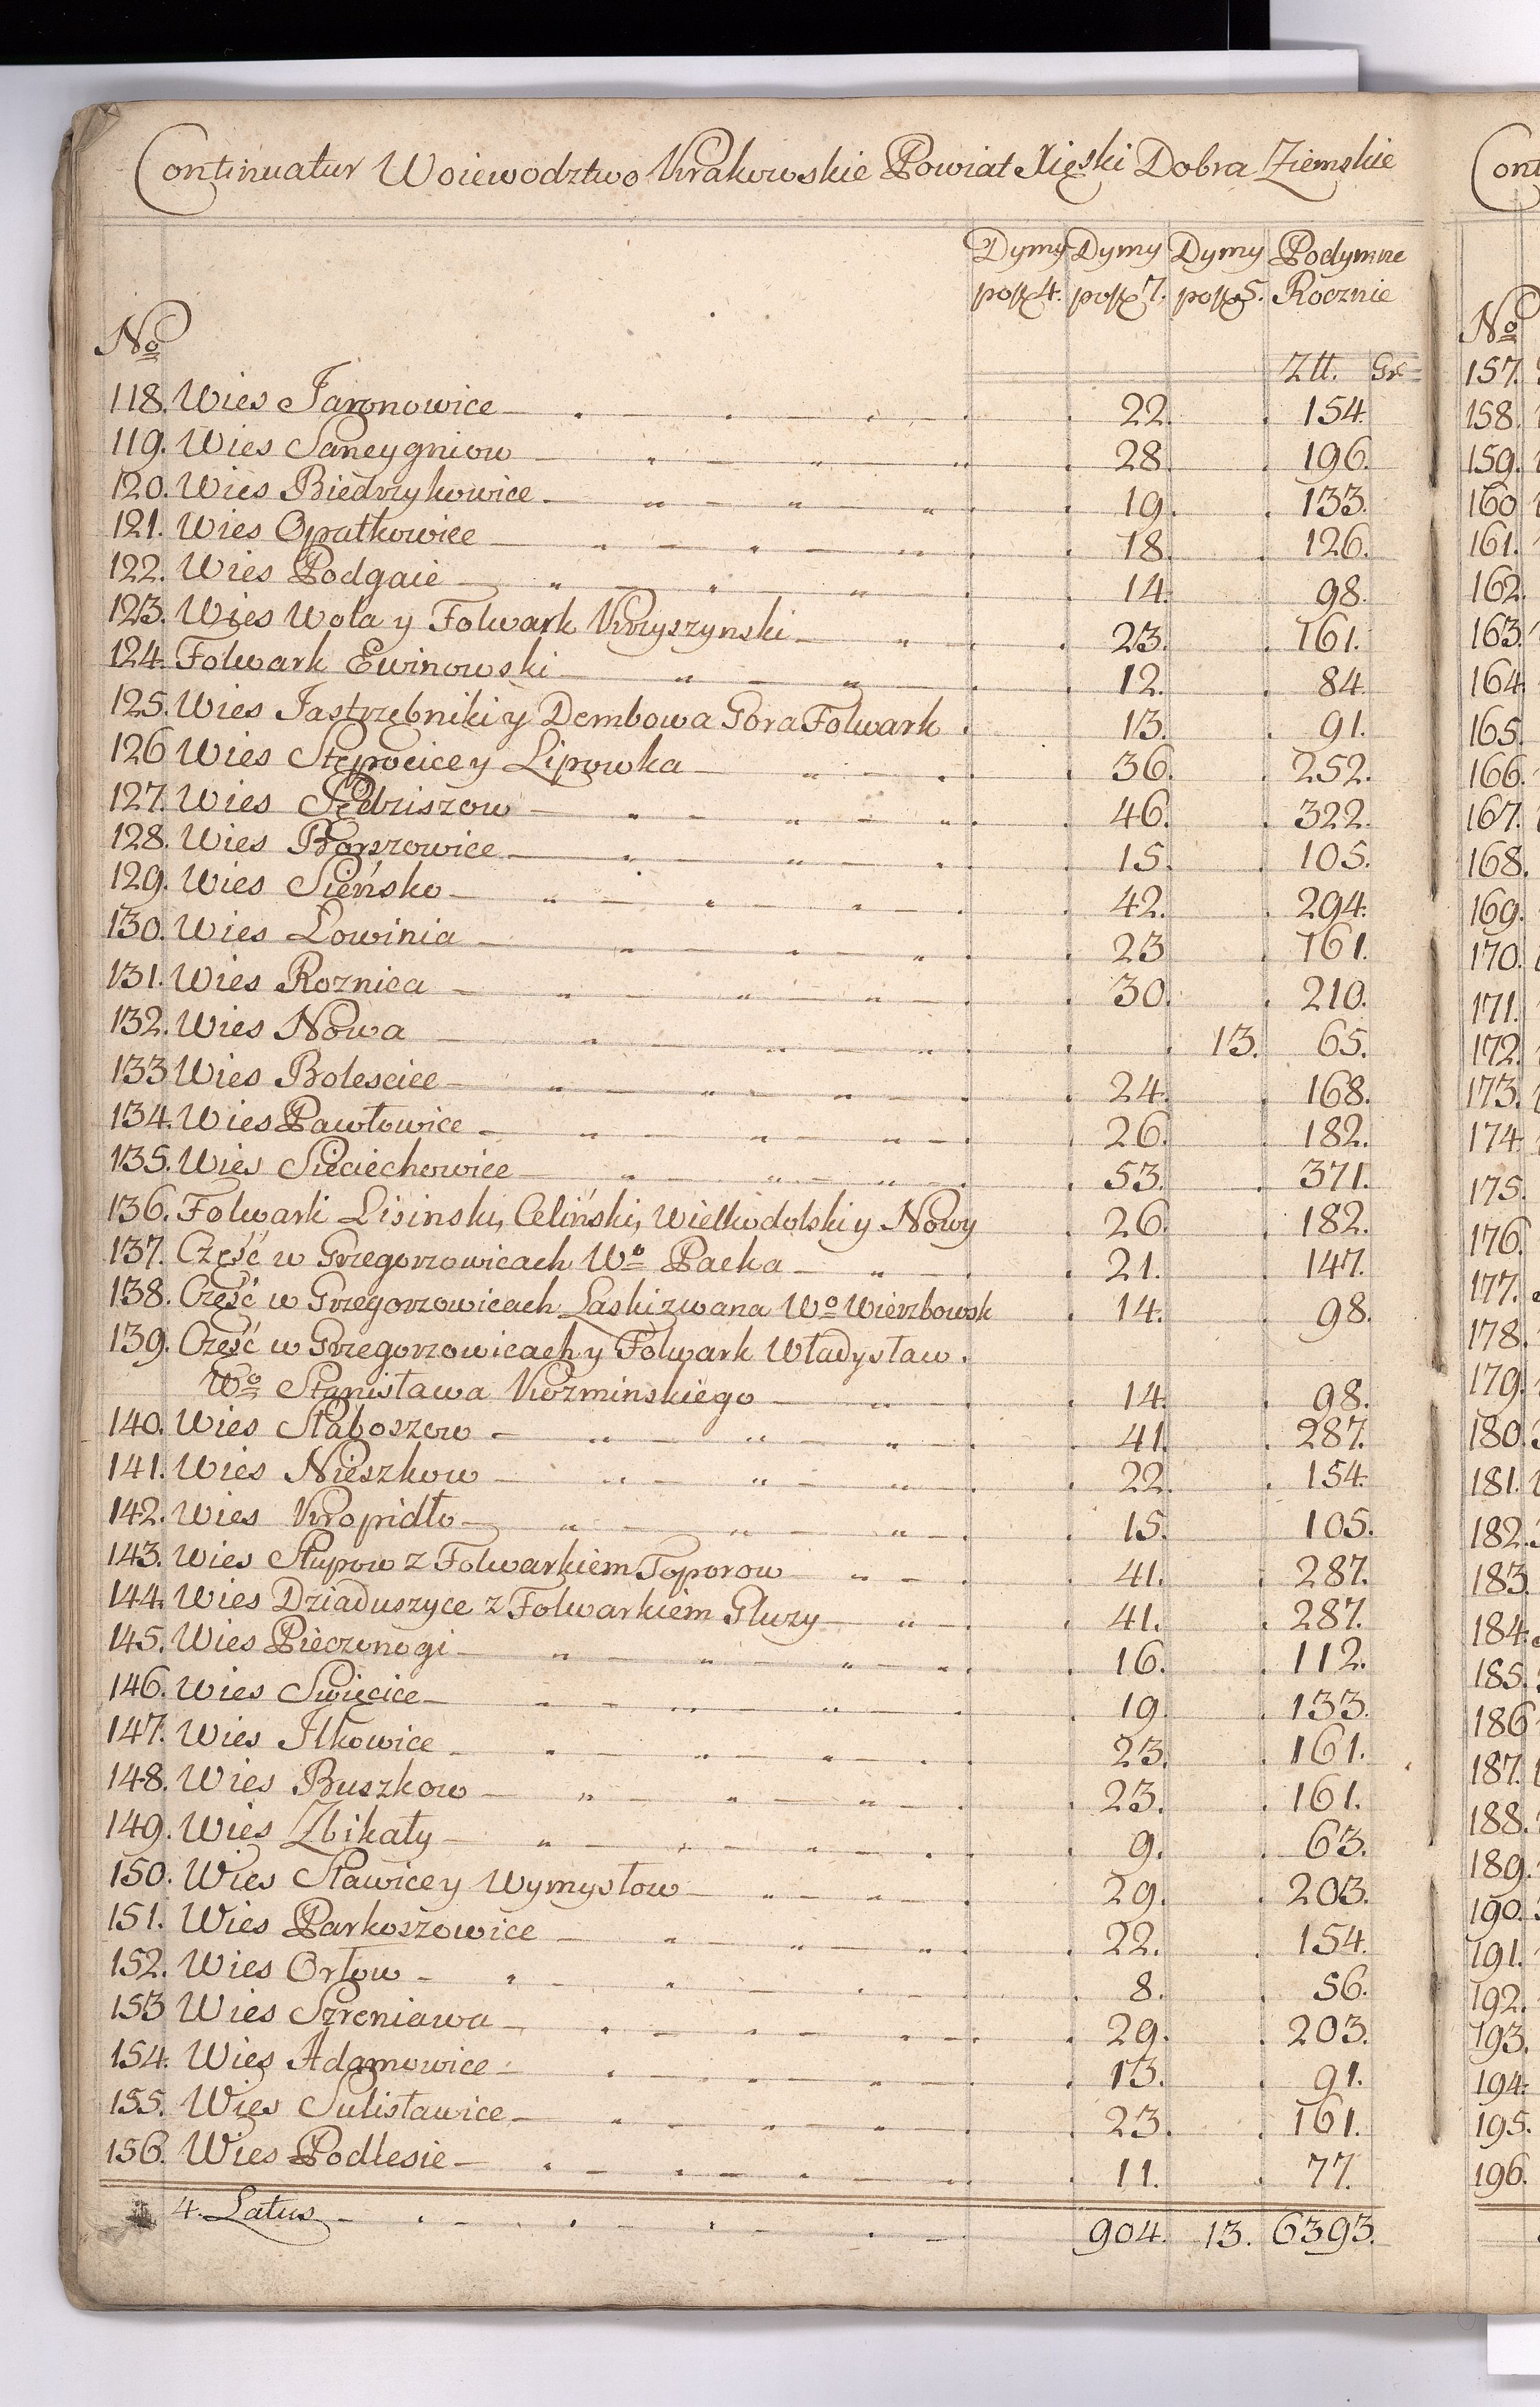 Continuatur Woiewodztwo Krakowskie Powiat Xięski Dobra Ziemskie
Nº Dymy po fl 4. Dymy po fl 7. Dymy po fl 5. Podymne Rocznie
Złł. Gr
118. Wies Jaronowice 22. 154.
119. Wies Saneygniow 28. 196.
120. Wies Biedrzykowice 19. 133.
121. Wies Opatkowice 18. 126.
122. Wies Podgaie 14. 98.
123. Wies Wola y Folwark Krzyszynski 23. 161.
124. Folwark Ewinowski 12. 84.
125. Wies Jastrzębniki y Dembowa Gora Folwark 13. 91.
126 Wies Stępocice y Lipowka 36. 252.
127. Wies Sędziszow 46. 322.
128. Wies Borszowice 15. 105.
129. Wies Sieńsko 42. 294.
130. Wies Lowinia 23 161.
131. Wies Roznica 30. 210.
132. Wies Nowa 13. 65.
133 Wies Bolescice 24. 168.
134. Wies Pawłowice 26. 182.
135. Wies Sieciechowice 53. 371.
136. Folwarki Lisinski, Celiński, Wielkodolski y Nowy 26. 182.
137. Część w Grzegorzowicach Wº Packa 21. 147.
138. Część w Grzegorzowicach Laski zwana Wº Wierzbowsk 14. 98.
139. Część w Grzegorzowicach y Folwark Władysław.
Wº Stanisława Kozminskiego 14. 98.
140. Wies Słaboszow 41. 287.
141. Wies Nieszkow 22. 154.
142. Wies Kropidło 15. 105.
143. Wies Słupow z Folwarkiem Toporow 41. 287.
144. Wies Dziaduszyce z Folwarkiem Gluzy 41. 287.
145. Wies Pieczonogi 16. 112.
146. Wies Swięcice 19. 133.
147. Wies Ilkowice 23. 161.
148. Wies Buszkow 23. 161.
149. Wies Zbikały 9. 63.
150. Wies Sławice y Wymysłow 29. 203.
151. Wies Parkoszowice 22. 154.
152. Wies Orłow 8. 56.
153 Wies Szreniawa 29. 203.
154. Wies Adamowice 13. 91.
155. Wies Sulisławice 23. 161.
156. Wies Podlesie 11. 77.
4. Latus 904. 13. 6393.
Cont
Nº
157.
158.
159.
160
161.
162.
163.
164.
165.
166.
167.
168.
169.
170.
171.
172.
173.
174.
175.
176.
177.
178.
179.
180.
181.
182.
183.
184.
185.
186
187.
188.
189.
190.
191.
192.
193.
194.
195.
196.